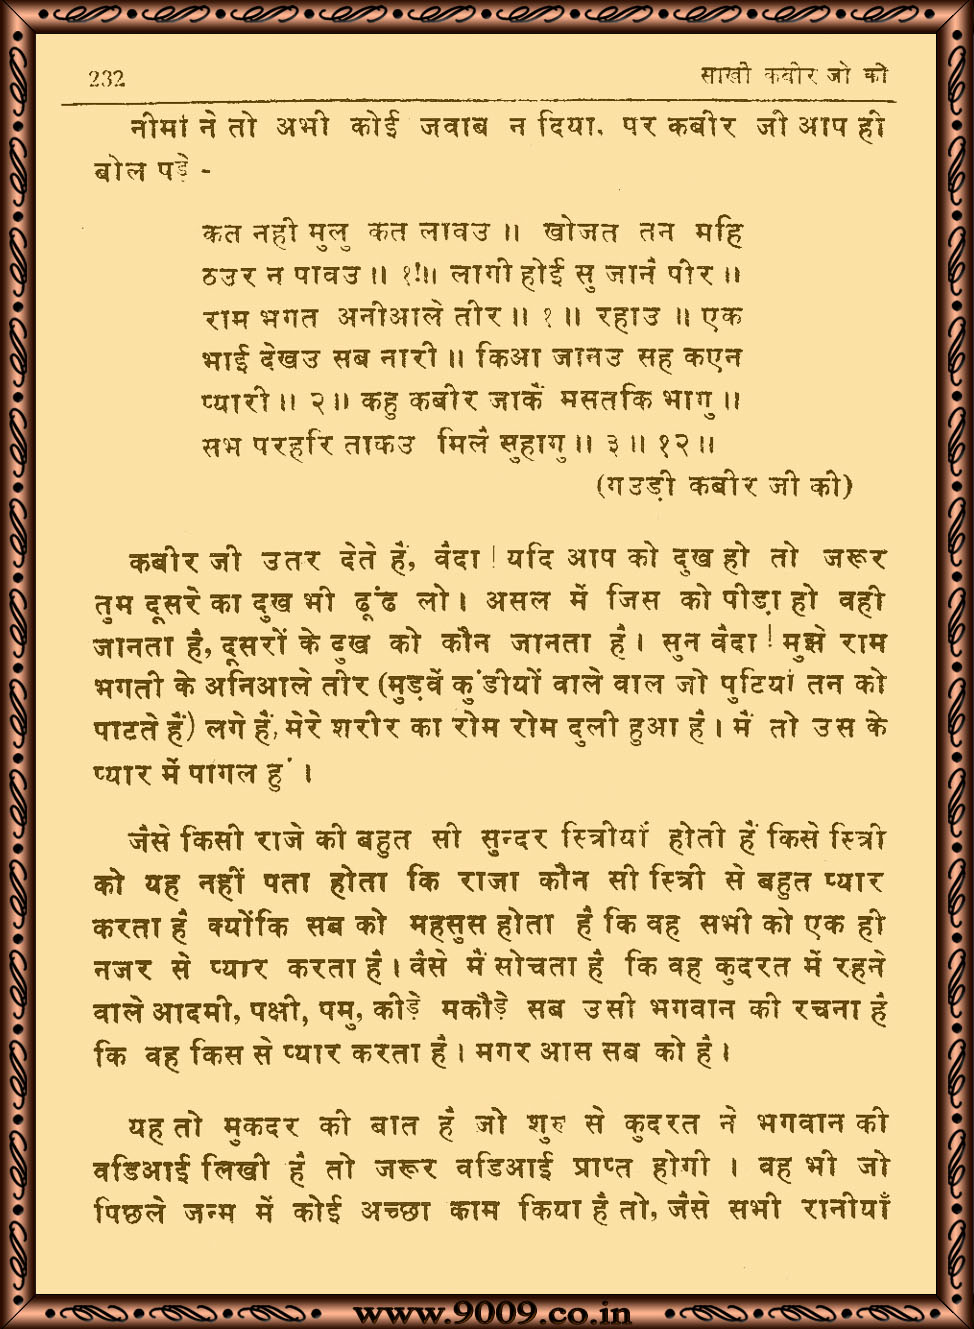 232 साखी कबीर जी की
नीमां ने तो अभी कोई जवाब न दिया. पर कबीर जी आप ही
बोल पड़े -
कत नही मुलु कत लावउ ॥ खोजत तन महि
ठउर न पावउ ॥ १॥ लागी होई सु जानै पीर ॥
राम भगत अनीआले तीर ॥ १ ॥ रहाउ ॥ एक
भाई देखउ सब नारी ॥ किआ जानउ सह कएन
प्यारी ॥ २ ॥ कहु कबीर जाकै मसतकि भागु ॥
सभ परहरि ताकउ मिलै सुहागु ॥ ३ ॥ १२ ॥
(गउड़ी कबीर जी की)
कबीर जी उतर देते हैं, वैदा ! यदि आप को दुख हो तो जरूर
तुम दूसरे का दुख भी ढूंढ लो । असल में जिस को पीड़ा हो वही
जानता है, दूसरों के दुख को कौन जानता है । सुन वैदा ! मुझे राम
भगती के अनिआले तीर (मुड़वें कुंडीयों वाले वाल जो पुटियां तन को
पाटते हैं) लगे हैं, मेरे शरीर का रोम रोम दुली हुआ है । मैं तो उस के
प्यार में पागल हुं ।
जैसे किसी राजे की बहुत सी सुन्दर स्त्रियां होती हैं किसे स्त्री
को यह नहीं पता होता कि राजा कौन सी स्त्री से बहुत प्यार
करता है क्योंकि सब को महसुस होता है कि वह सभी को एक ही
नजर से प्यार करता है । वैसे मैं सोचता है कि वह कुदरत में रहने
वाले आदमी, पक्षी, पमु, कीड़े मकौड़े सब उसी भगवान की रचना है
कि वह किस से प्यार करता है । मगर आस सब को है ।
यह तो मुकदर की बात है जो शुरु से कुदरत ने भगवान की
वडिआई लिखी है तो जरूर वडिआई प्राप्त होगी । वह भी जो
पिछले जन्म में कोई अच्छा काम किया है तो, जैसे सभी रानीयाँ
www.9009.co.in